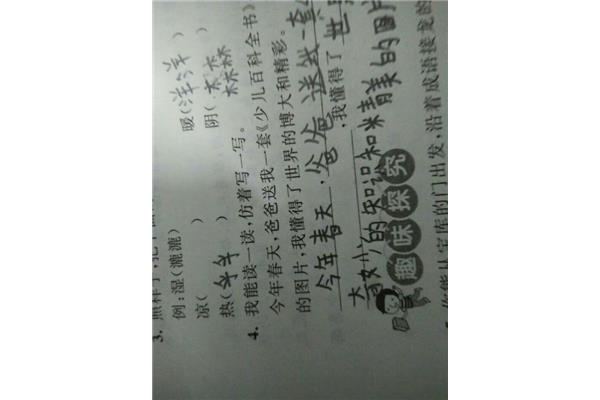 3. 照样子
例:湿(漉漉) 暖(洋洋)
凉( ) 阴(森森
热(乎乎)
4. 我能读一读,仿着写一写。
今年春天,爸爸送我一套《少儿百科全书》
的图片,我懂得了世界的博大和精彩。
今年春天,爸爸送我一套
,我懂得了世
奇妙的知识和精美的图片
趣味探究
你能从字库的门出发,沿着成语接龙的